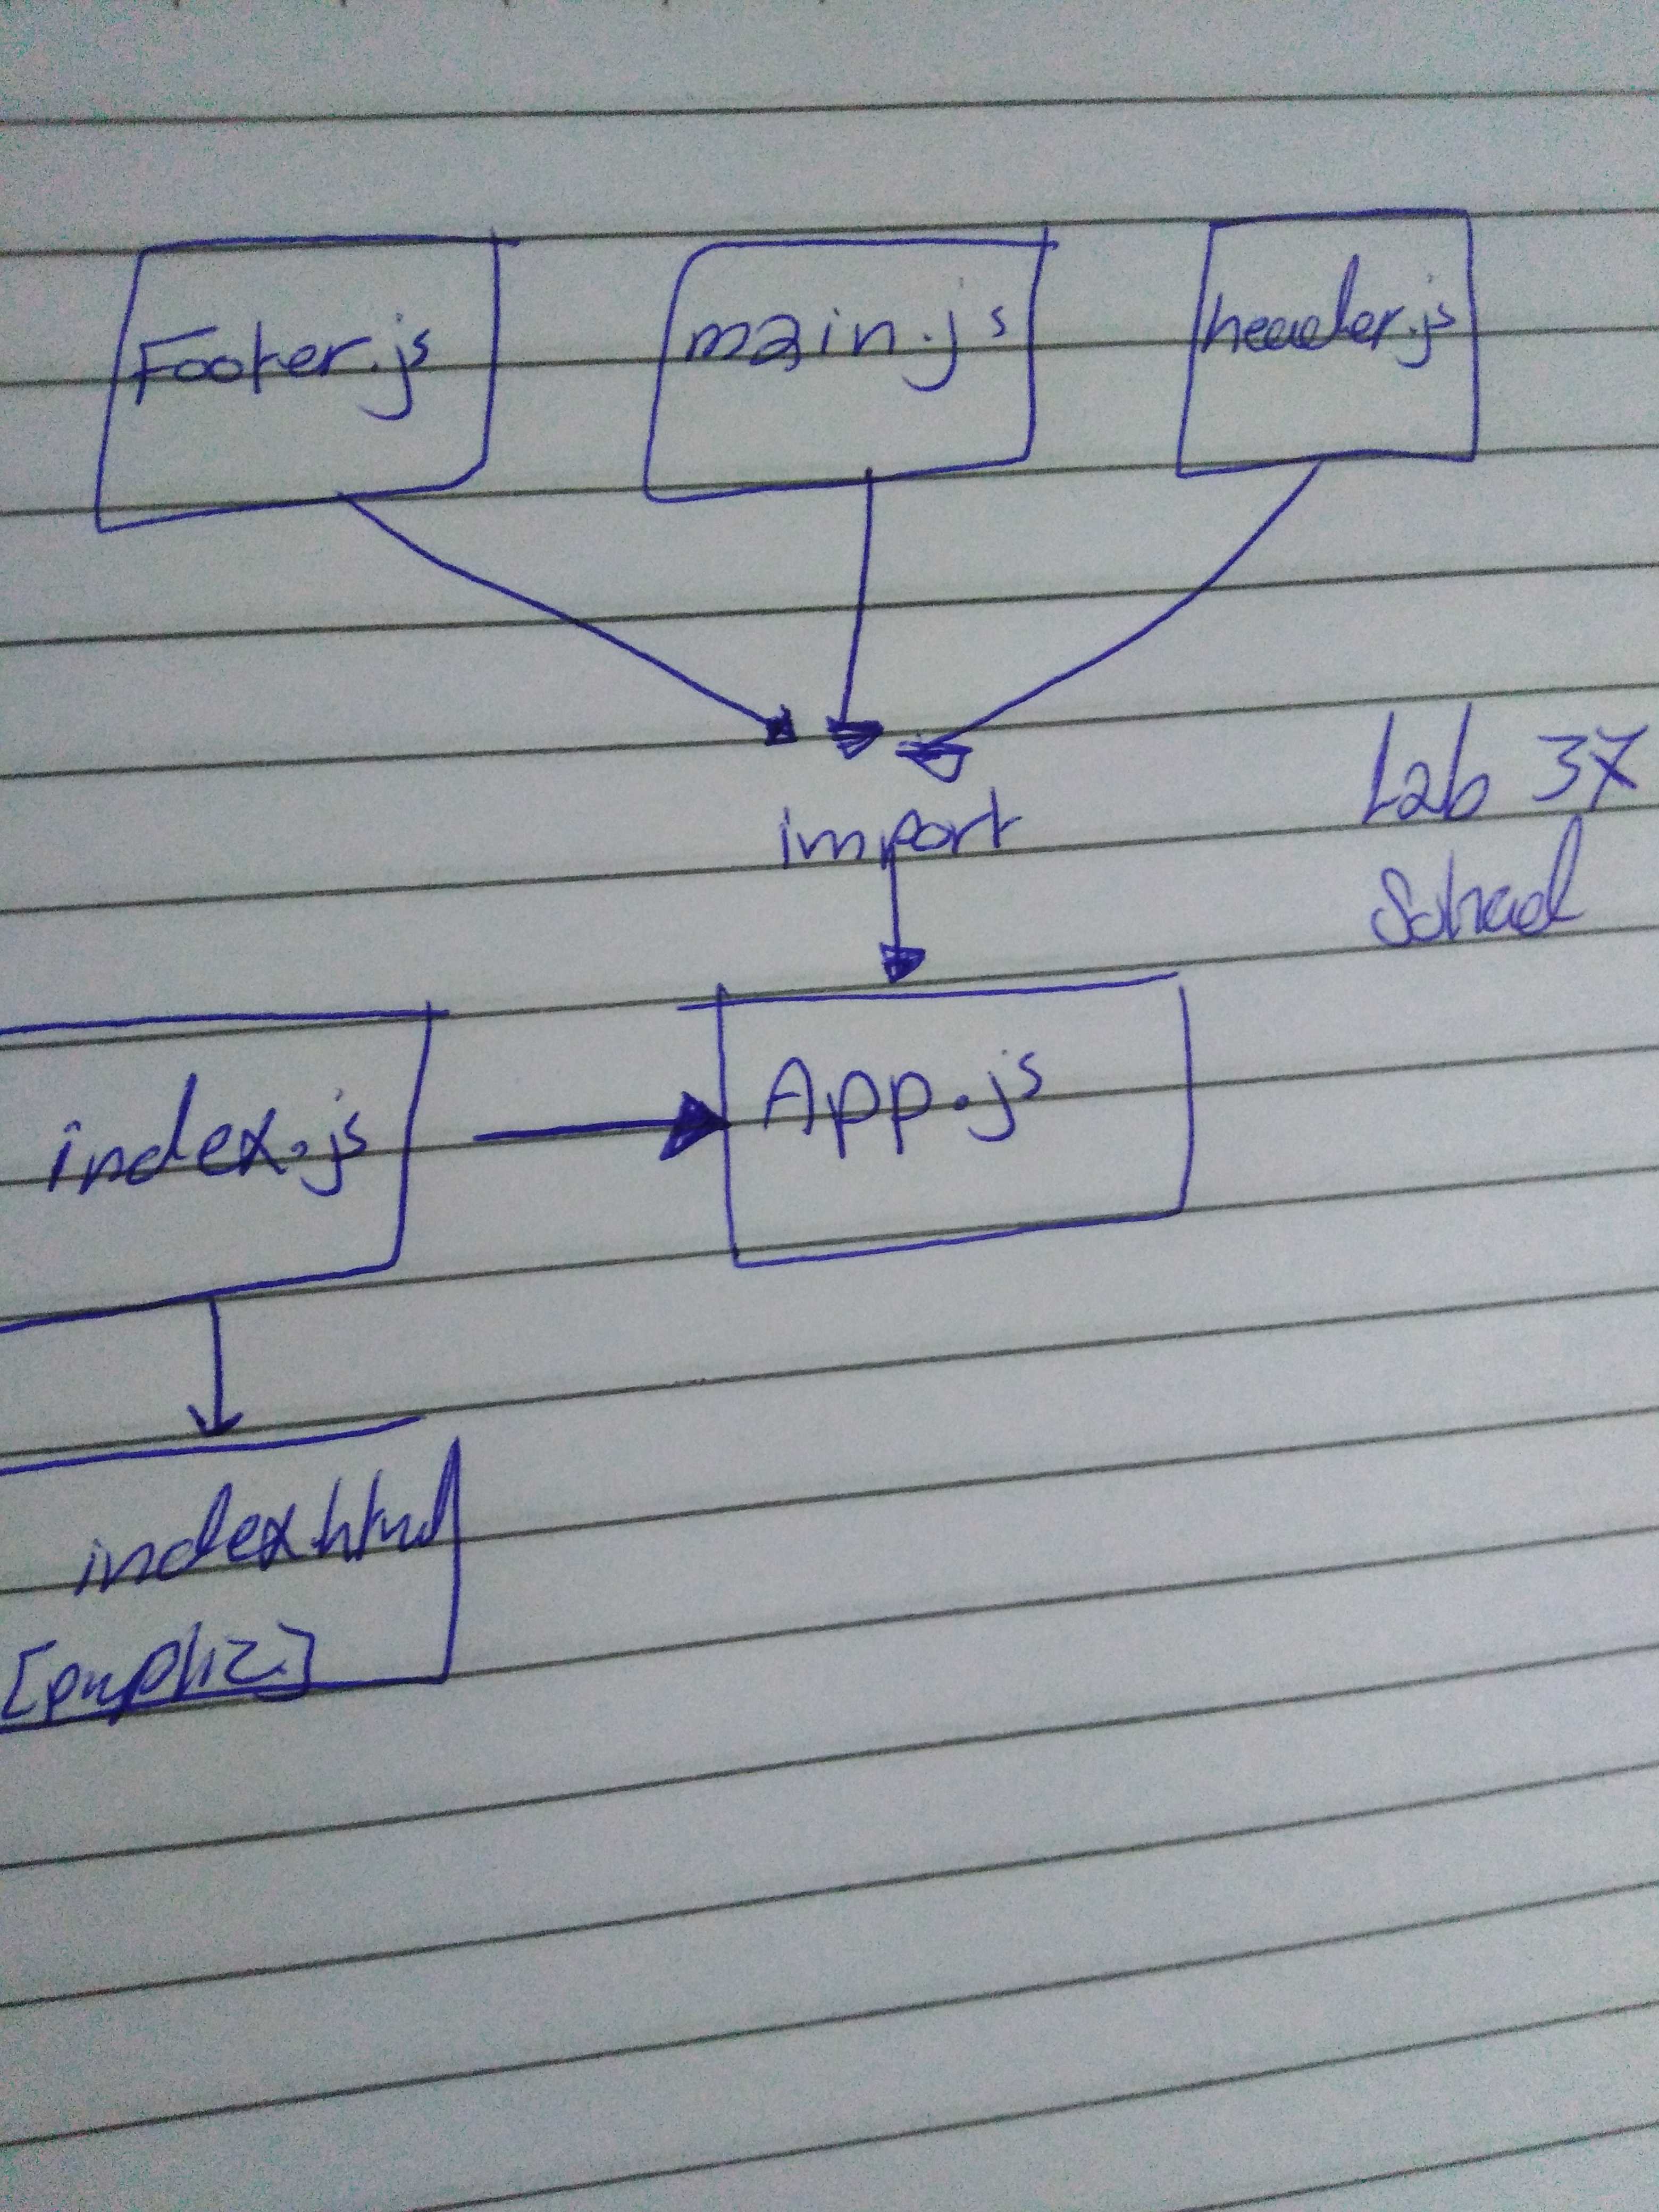 Footer.js
main.js
header.js
import
Lab 37
index.js
App.js
index.html
[puplic]